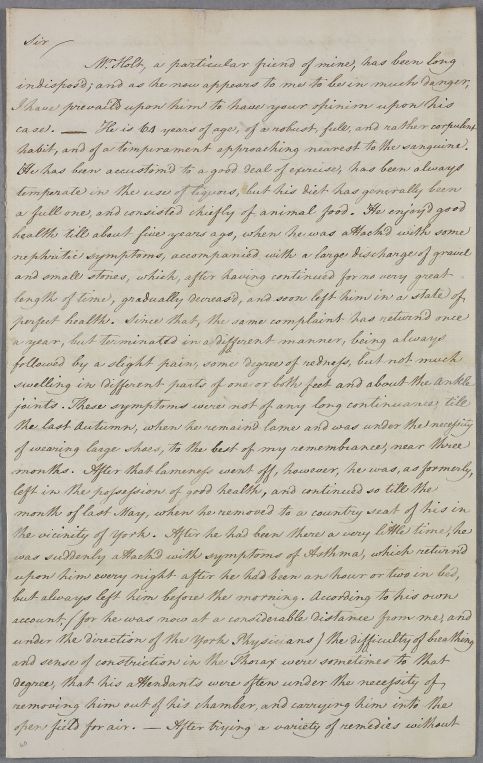 Sir/
Mr. Holt, a particular friend of mine, has been long
indispos'd; and as he now appears to me to be in much danger,
I have prevail'd upon him to have your opinion upon his
case. — He is 64 years of age, of a robust, full, and rather corpulent
habit, and of a temperament approaching nearest to the sanguine.
He has been accustom'd to a good deal of exercise, has been always
temperate in the use of liquors, but his diet has generally been
a full one, and consisted chiefly of animal food. He enjoy'd good
health till about five years ago, when he was attack'd with some
nephritic symptoms, accompanied with a large discharge of gravel
and small stones, which, after having continued for no very great
length of time, gradually decreas'd, and soon left him in a state of
perfect health. Since that, the same complaint has return'd once
a year, but terminated in a different manner, being always
followed by a slight pain, some degree of redness, but not much
swelling in different parts of one or both feet and about the Ankle
joints. These symptoms were not of any long continuance, till
the last Autumn, when he remain'd lame and was under the necessity
of wearing large shoes, to the best of my remembrance, near three
months. After that lameness went off, however, he was, as formerly,
left in the possession of good health, and continued so till the
month of last May, when he removed to a country seat of his in
the vicinity of York. After he had been there a very little time, he
was suddenly attack'd with symptoms of Asthma, which return'd
upon him every night after he had been an hour or two in bed,
but always left him before the morning. According to his own
account, (for he was now at a considerable distance from me, and
under the direction of the York Physicians) the difficulty of breathing
and sense of constriction in the Thorax were sometimes to that
degree, that his attendants were often under the necessity of
removing him out of his chamber, and carrying him into the
open field for air. — After trying a variety of remedies without